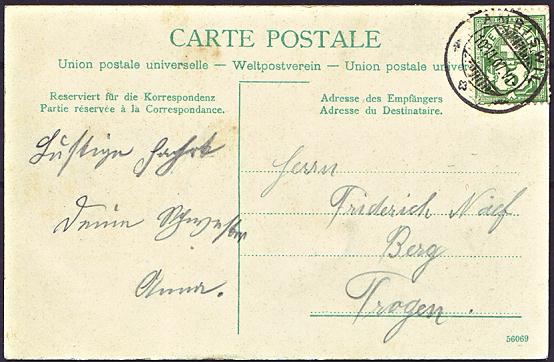 CARTE POSTALE
Union postale universelle — Weltpostverein — Union postale univer
Reserviert für die Korrespondenz
Partie réservée à la Correspondance.
Adresse des Empfängers
Adresse du Destinataire.
Lustige Fahrt
Deine Schwester
Anna.
Herrn
Friderich Näf
Berg
Trogen.
56069